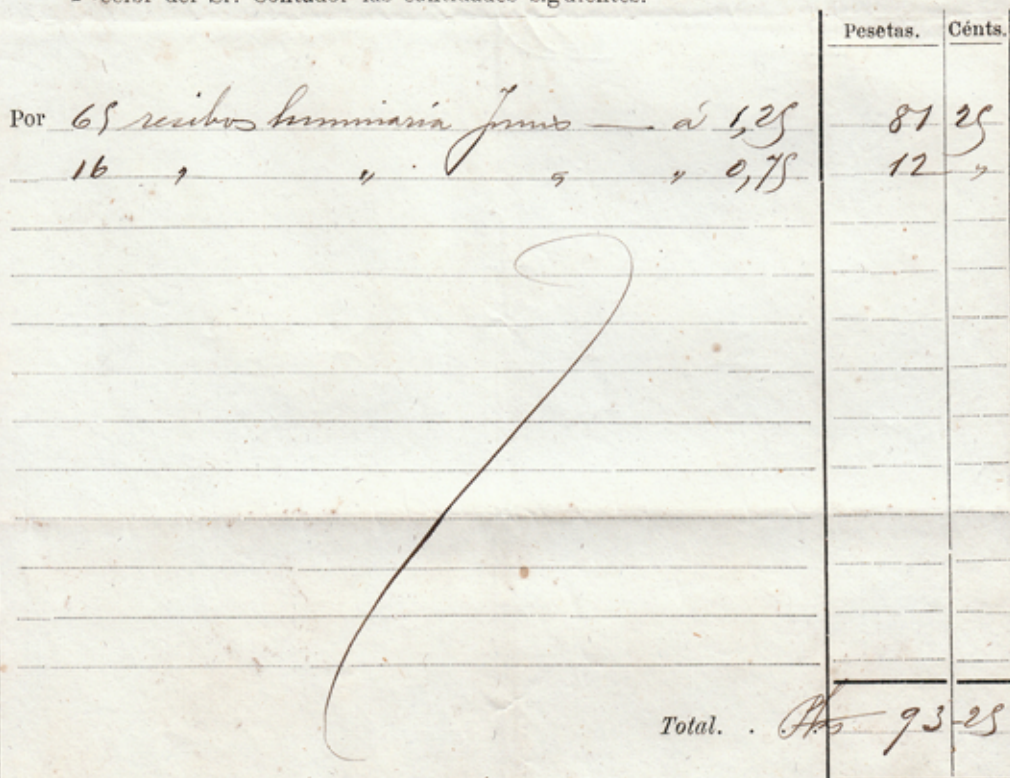 del Sr. Contador las cantidades siguientes:
Pesetas. Cénts.
Por 65 recibos luminaria Junio — á 1,25 81 25
16 " " " " 0,75 12 "
Total. . Pts 93-25